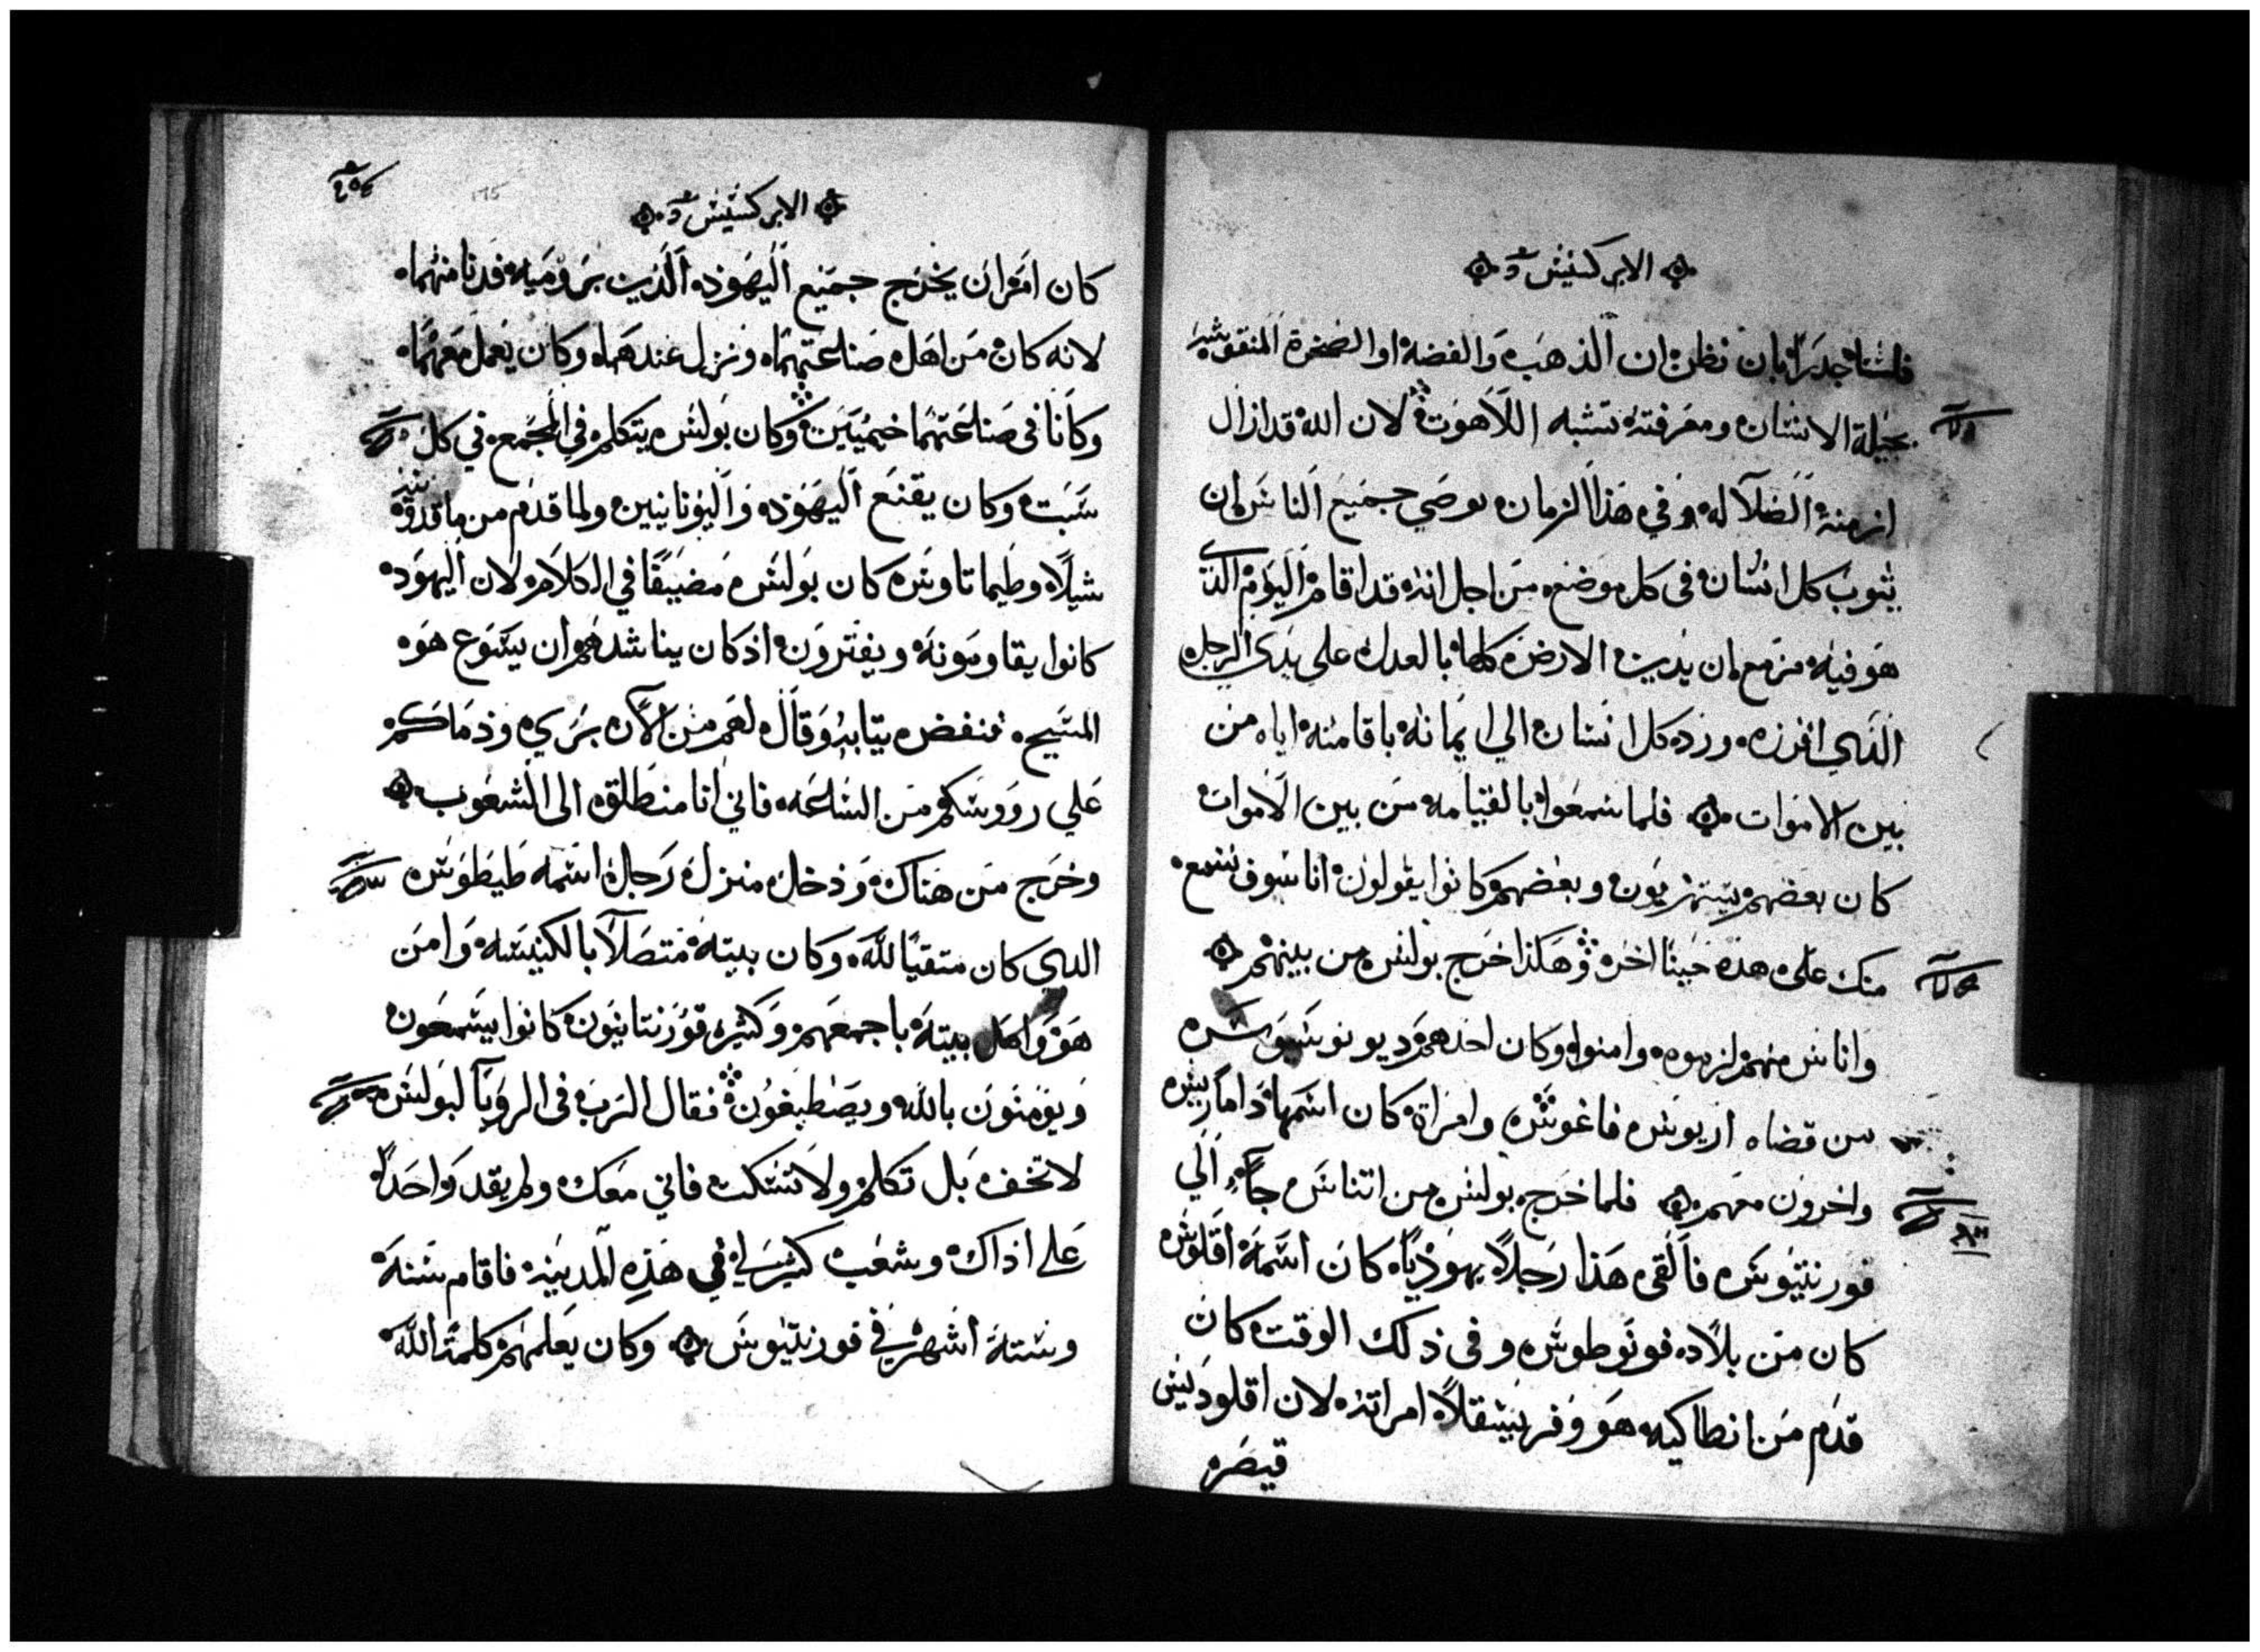 الابركسيس
فلسنا جديرًا بان نظن ان الذهب والفضه او الصخرة المنقوشه
بحيلة الانسان ومعرفته تشبه اللاهوت لان الله قد ازال
ازمنة الضلاله وفي هذا الزمان يوصي جميع الناس ان
يتوب كل انسان في كل موضع من اجل انه قد اقام اليوم الذي
هو فيه مزمع ان يدين الارض كلها بالعدل على يدى الرجل
الذي افرزه ورد كل انسان الي ايمانه باقامته اياه من
بين الاموات فلما سمعوا بالقيامه من بين الاموات
كان بعضهم يستهزيون وبعضهم كانوا يقولون انا سوف نسمع
منك على هذه حينا اخر وهكذا خرج بولس من بينهم
واناس منهم لزموه وامنوا وكان احدهم ديونوسيوس
من قضاه اريوس فاغوس وامراة كان اسمها داماريس
واخرون معهم فلما خرج بولس من اتناس جآ الي
قورنتيوس فالقى هذا رجلًا يهوديًا كان اسمه اقلوس
كان من بلاد فونوطوس وفى ذلك الوقت كان
قدم من انطاكيه هو وفريسقلا امراته لان اقلوديس
قيصر
الابركسيس
كان امر ان يخرج جميع اليهود الذين برومية فدنا منهما
لانه كان من اهل صناعتهما ونزل عندهما وكان يعمل معهما
وكانا فى صناعتهما خيميين وكان بولس يتكلم في المجمع في كل
سبت وكان يقنع اليهود واليونانيين ولما قدم من ماقدونيه
شيلا وطيماتاوس كان بولس مضيقًا في الكلام لان اليهود
كانوا يقاومونه ويفترون اذ كان يناشدهم ان يسوع هو
المسيح فنفض تيابه وقال لهم من الآن بري وذماكم
علي رووسكم من الساعه فاني انا منطلق الى الشعوب
وخرج من هناك ودخل منزل رجل اسمه طيطوس
الدى كان متقيًا لله وكان بيته متصلًا بالكنيسه وامن
هو واهل بيته باجمعهم وكثير قورنتانيون كانوا يسمعون
ويومنون بالله ويصطبغون فقال الرب فى الرويا لبولس
لا تخف بل تكلم ولا تسكت فاني معك ولم يقد واحدًا
على اذاك وشعب كثير لي في هذه المدينه فاقام سنة
وستة اشهر في قورنتيوس وكان يعلمهم كلمة الله